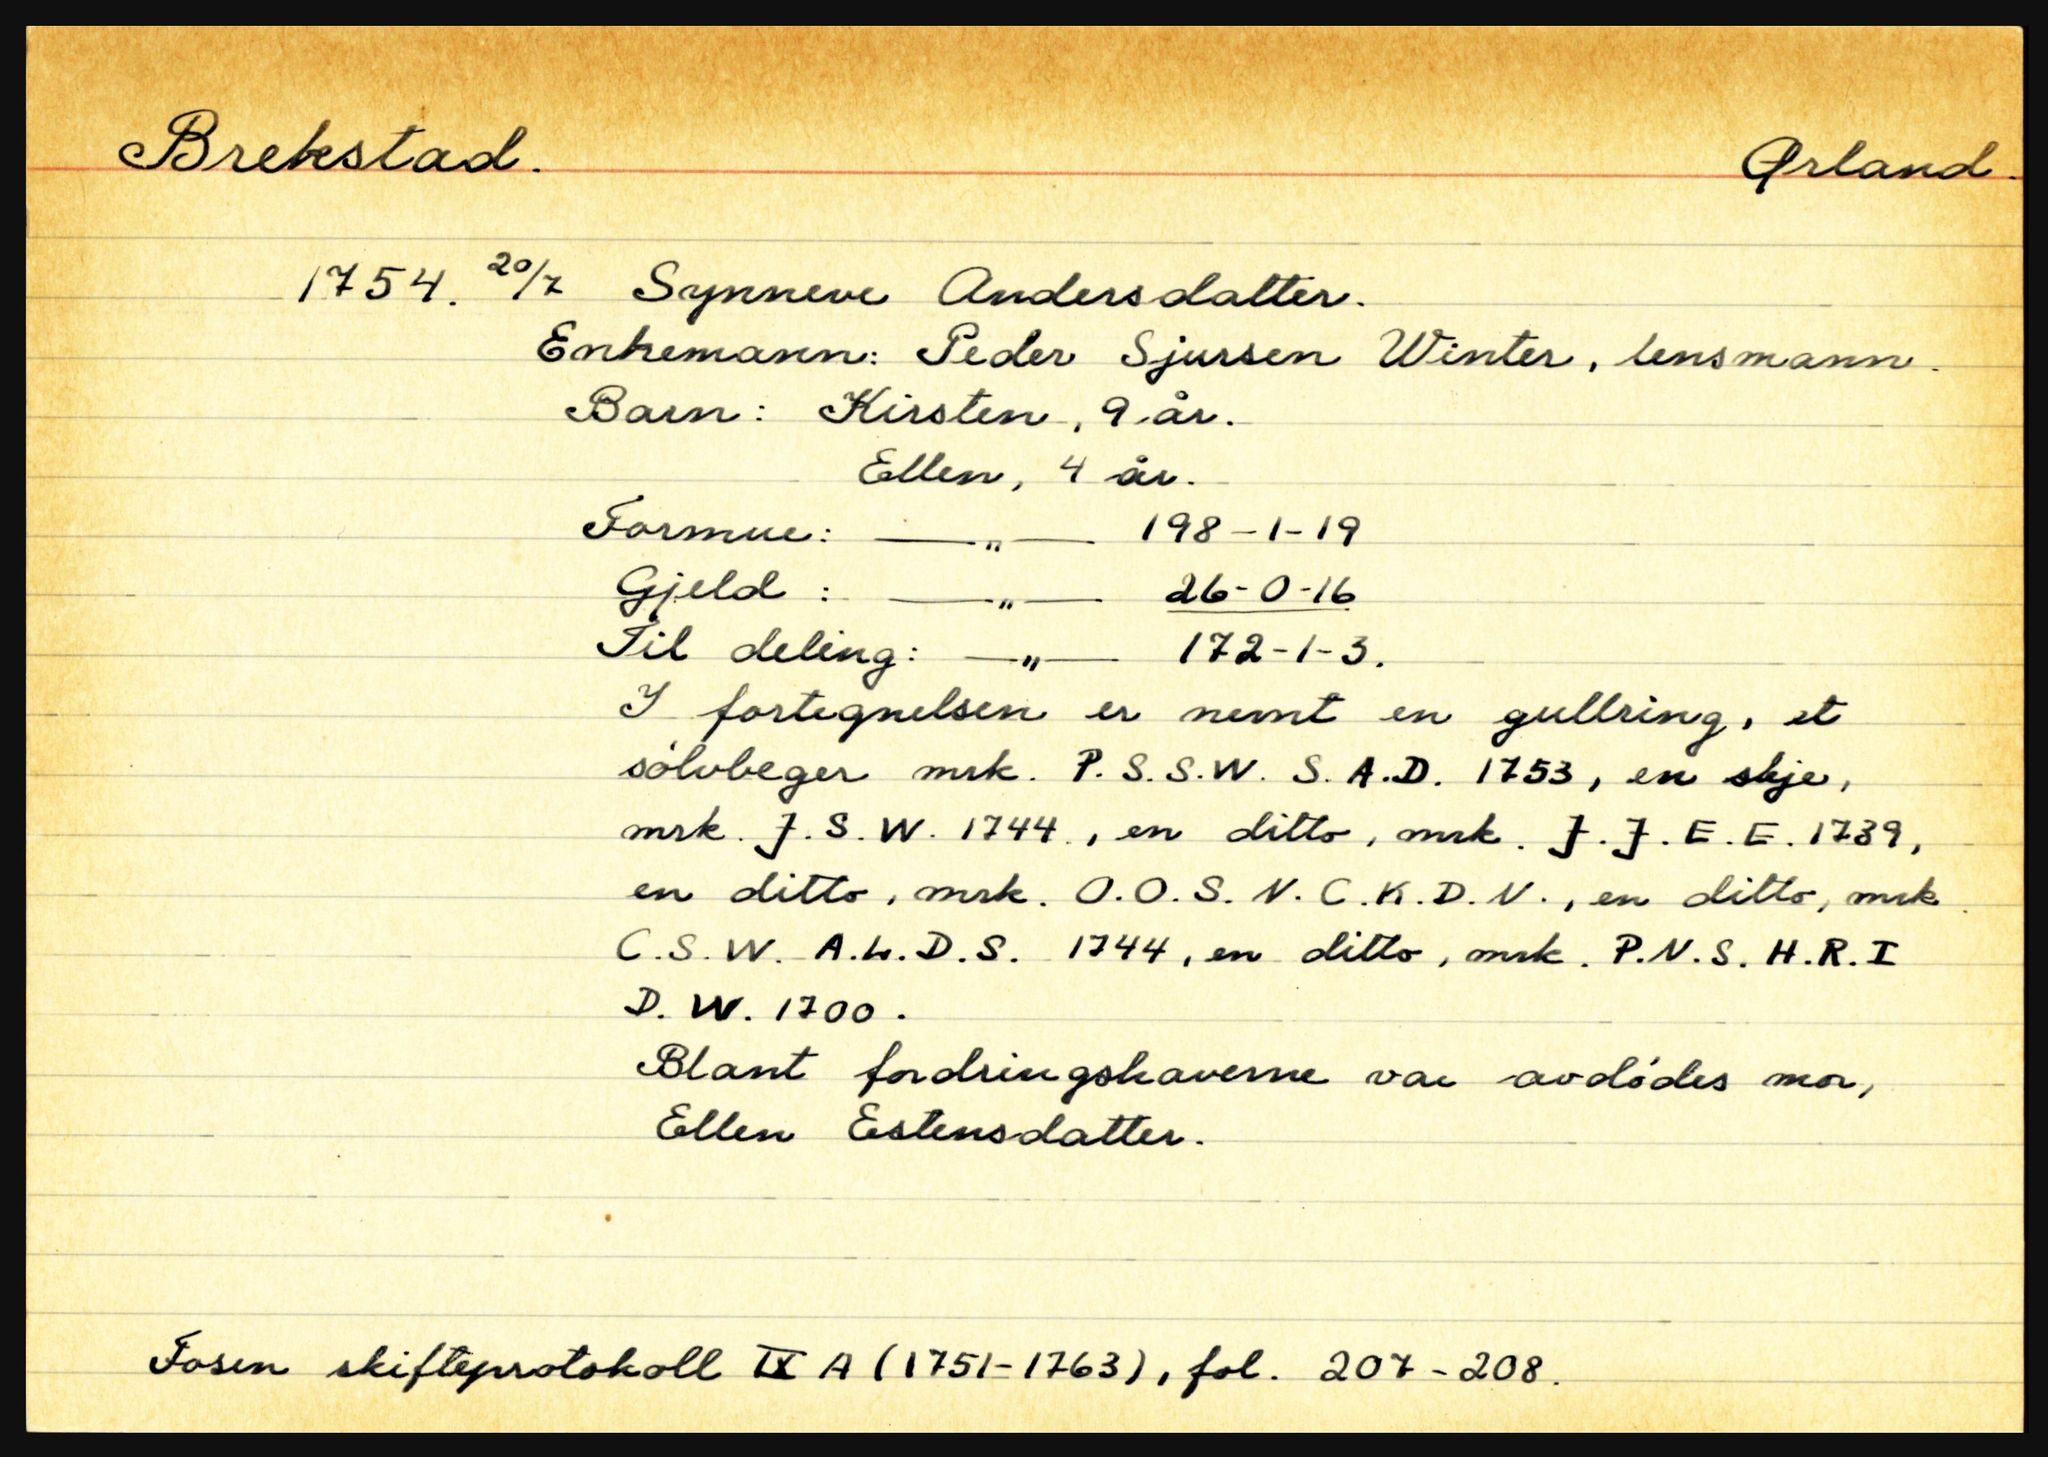 Brekstad. Ørland.
1754. 20/7 Synneve Andersdatter.
Enkemann: Peder Sjursen Winter, lensmann.
Barn: Kirsten, 9 år.
Ellen, 4 år.
Formue: —„— 198-1-19
Gjeld : —„— 26-0-16
Til deling: —„— 172-1-3.
I fortegnelsen er nevnt en gullring, et
sølvbeger mrk. P.S.S.W. S.A.D. 1753, en skje,
mrk. J.S.W. 1744, en ditto, mrk. J.J.E.E. 1739,
en ditto, mrk. O.O.S.N.C.K.D.N., en ditto, mrk.
C.S.W. A.L.D.S. 1744, en ditto, mrk. P.N.S. H.R.I
D.W. 1700.
Blant fordringshaverne var avdødes mor,
Ellen Estensdatter.
Fosen skifteprotokoll IX A (1751-1763), fol. 207-208.